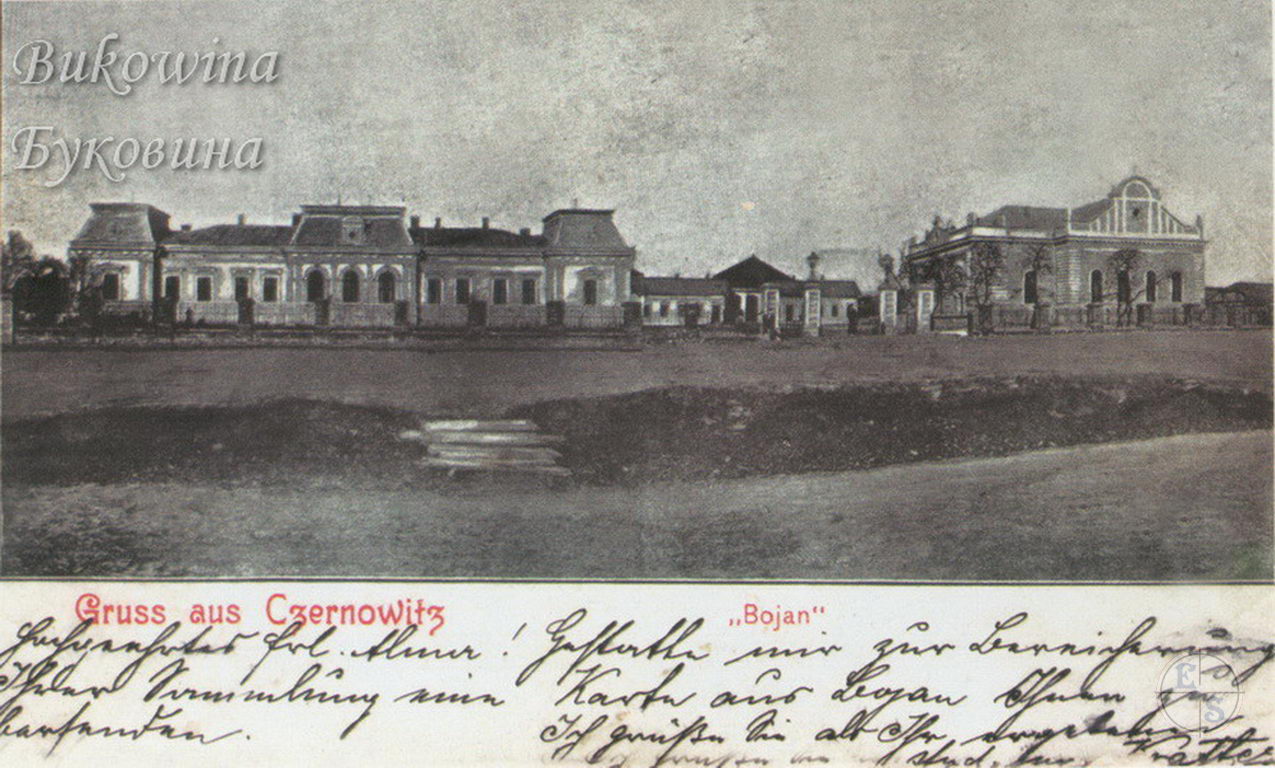 Bukowina
Буковина
Gruss aus Czernowitz
„Bojan"
Hochgeehrtes Frl. Alma! Gestatte mir zur Bereicherung
Ihrer Sammlung eine Karte aus Bojan Ihnen zu
übersenden.
Ich grüße Sie als Ihr ergebener
stud.
E S